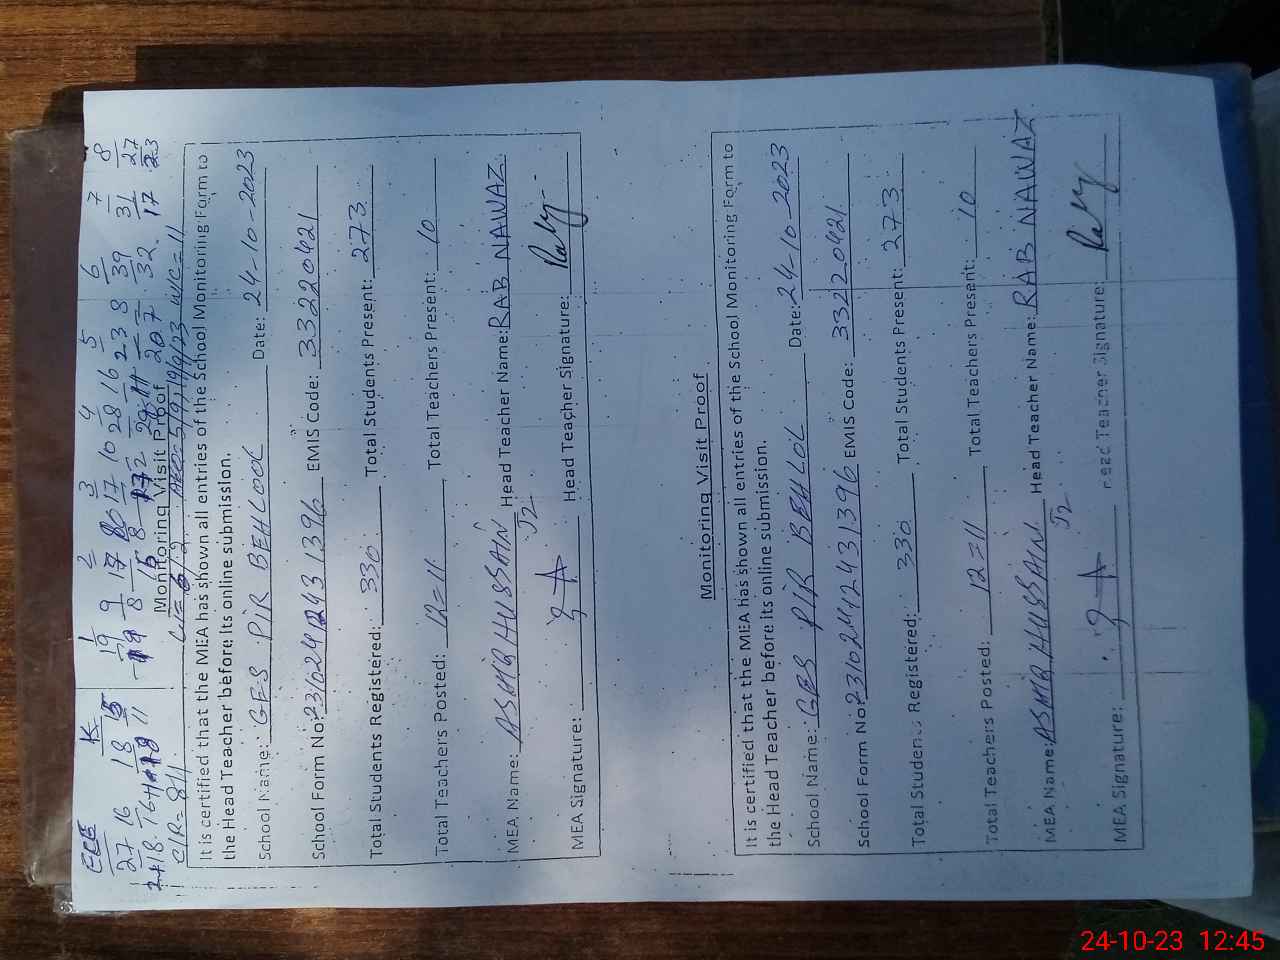 ECE K 1 2 3 4 5 6 7 8
27 16 18 15 19 9 17 17 10 28 16 23 8 39 31 27
32 17 23
C/R= 8/11
Monitoring Visit Proof
It is certified that the MEA has shown all entries of the School Monitoring Form to
the Head Teacher before its online submission.
School Name: GES PIR BEHLOOL Date: 24-10-2023
School Form No: 231024124 31396 EMIS Code: 33220421
Total Students Registered: 330 Total Students Present: 273
Total Teachers Posted: 12=11 Total Teachers Present: 10
MEA Name: ASMA HUSSAIN Head Teacher Name: RAB NAWAZ
J2
MEA Signature: Head Teacher Signature:
Monitoring Visit Proof
It is certified that the MEA has shown all entries of the School Monitoring Form to
the Head Teacher before its online submission.
School Name: GES PIR BEHLOL Date: 24-10-2023
School Form No: 23102441243 1396 EMIS Code: 33220421
Total Students Registered: 330 Total Students Present: 273
Total Teachers Posted: 12=11 Total Teachers Present: 10
MEA Name: ASMA HUSSAIN Head Teacher Name: RAB NAWAZ
J2
MEA Signature: Head Teacher Signature:
24-10-23 12:45